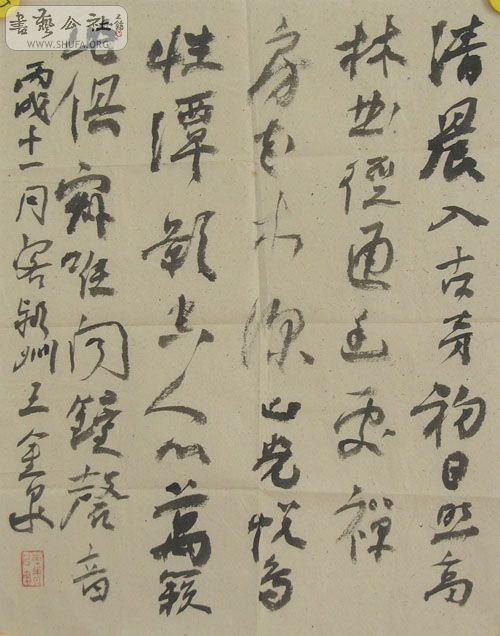 清晨入古寺初日照高
林曲徑通幽處禪
房花木深山光悅鳥
性潭影空人心萬籟
此俱寂唯聞鐘磬音
丙戌十一月客潁州王金泉
書藝公社
WWW.SHUFA.ORG